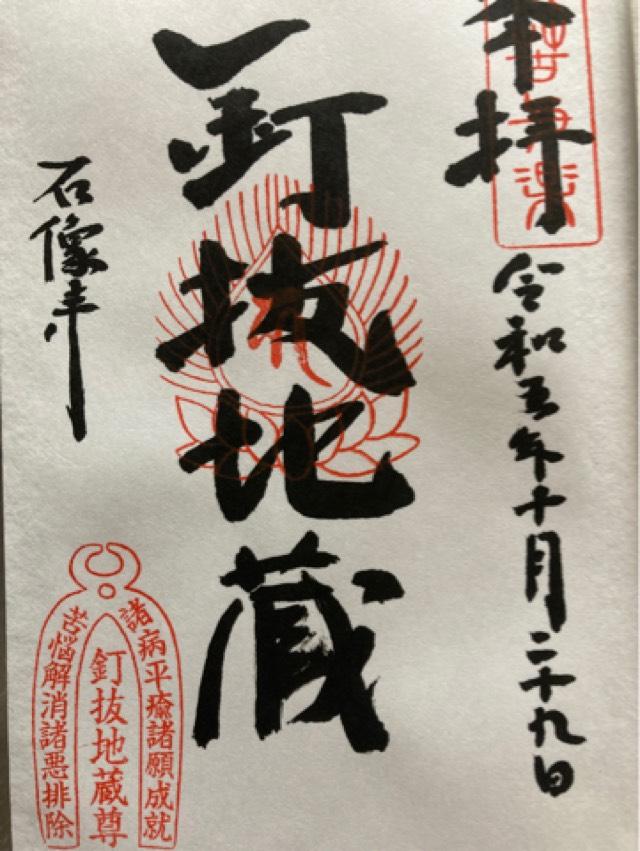 奉拝
令和五年十月二十九日
釘抜地蔵
石像寺
諸病平癒諸願成就
釘抜地蔵尊
苦悩解消諸悪排除